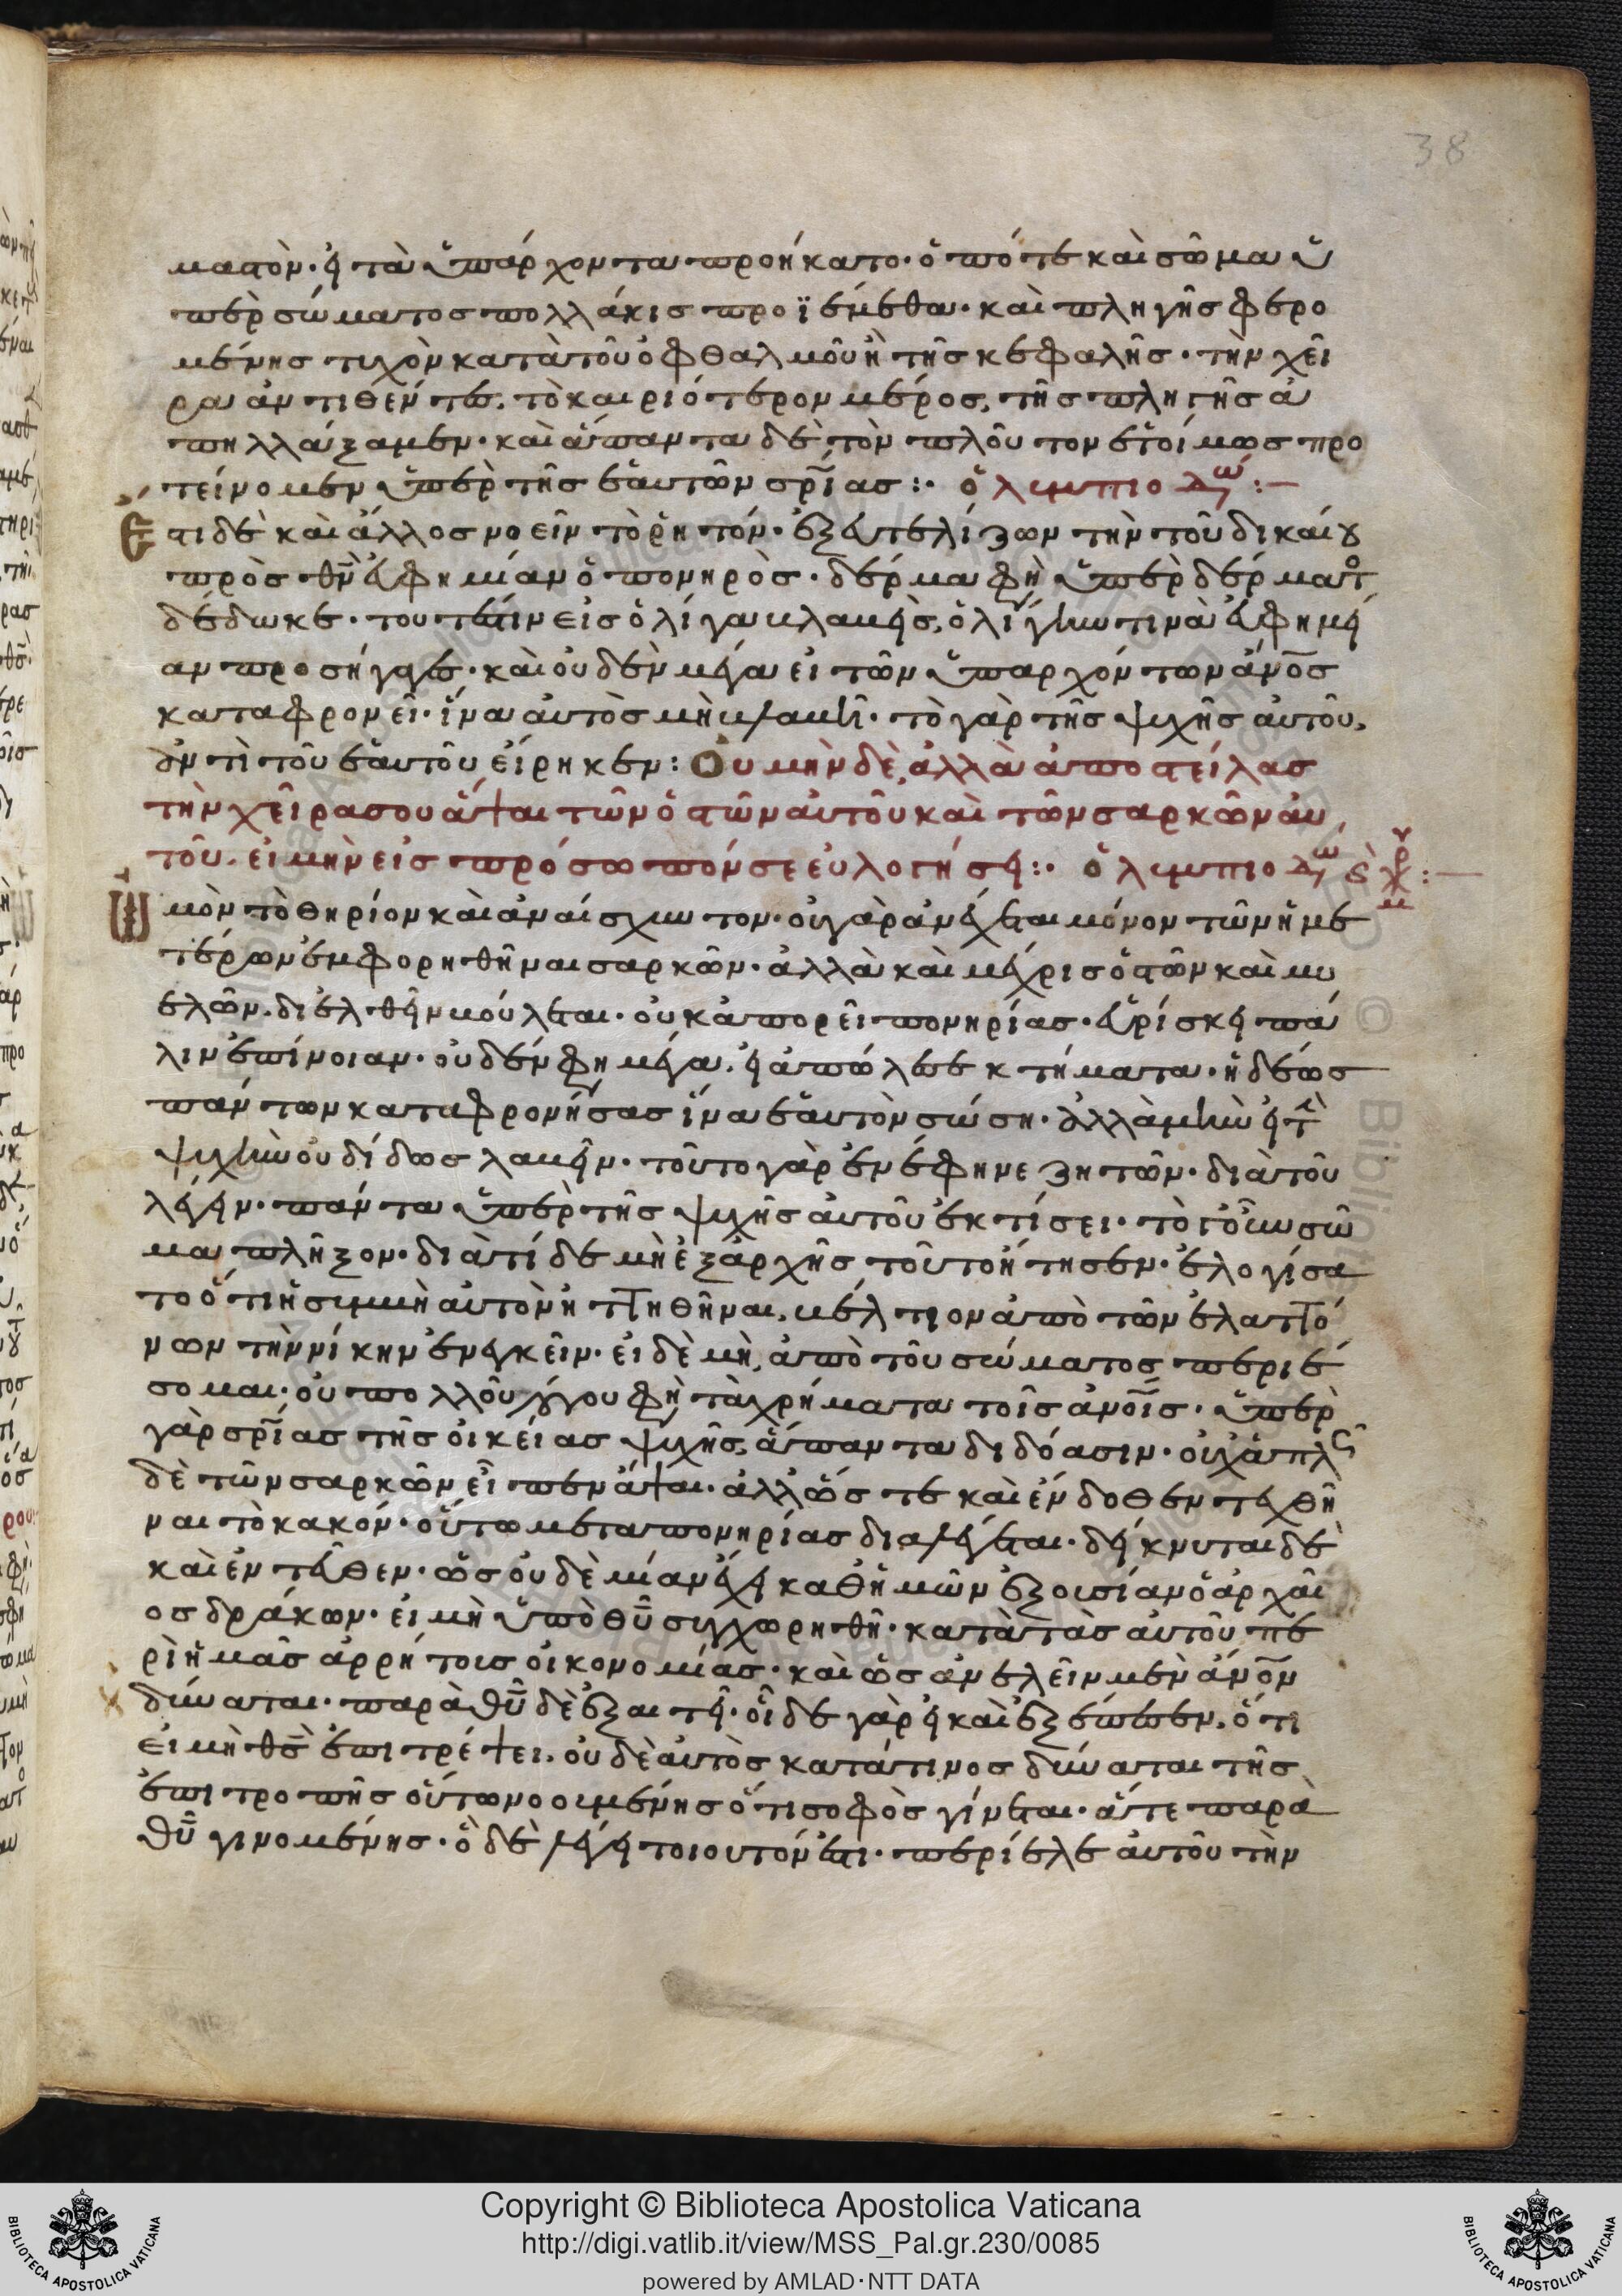 38
ματόν· εἰ τὰ ὑπάρχοντα προήκατο· ὁπότε καὶ σῶμα ὑ
πὲρ σώματος πολλάκις προϊέμεθα· καὶ πληγῆς φερο
μένης τυχὸν κατὰ τοῦ ὀφθαλμοῦ ἢ τῆς κεφαλῆς· τὴν χεῖ
ρα ἀντιθέντες, τὸ καιριότερον μέρος, τῆς πληγῆς ἀ
πηλλάξαμεν· καὶ ἅπαντα δὲ τὸν πλοῦτον ἑτοίμως προ
τείνομεν ὑπὲρ τῆς ἑαυτῶν σρίας:· ὀλυμπιοδώ:—
Ἔτι δὲ καὶ ἄλλος νοεῖν τὸ ῥητόν· ἐξευτελίζων τὴν τοῦ δικαίου
πρὸς θν εὐφημίαν ὁ πονηρός· δέρμα φη ὑπὲρ δέρματο
δέδωκε· τουτέστιν εἰς ὀλίγα βλαβεὶς, ὀλίγην τινὰ εὐφημί
αν προσήγαγε· καὶ οὐδὲν μέγα εἰ τῶν ὑπαρχόντων ἄνος
καταφρονεῖ· ἵνα αὐτὸς μὴ βλαβῇ· τὸ γὰρ τῆς ψυχῆς αὐτοῦ,
ἀντὶ τοῦ ἑαυτοῦ εἴρηκεν: Οὐ μὴν δὲ, ἀλλὰ ἀποστείλας
τὴν χεῖρα σου ἅψαι τῶν ὀστῶν αὐτοῦ καὶ τῶν σαρκῶν αὐ
τοῦ· εἰ μὴν εἰς πρόσωπόν σε εὐλογήσει:· ὀλυμπιοδώ
Ὠμὸν τὸ θηρίον καὶ ἀναίσχυντον· οὐ γὰρ ἀνέχεται μόνον τῶν ἡμε
τέρων ἐμφορηθῆναι σαρκῶν· ἀλλὰ καὶ μέχρις ὀστῶν καὶ μυ
ελῶν διελθεῖν βούλεται· οὐκ ἀπορεῖ πονηρίας· εὑρίσκει πά
λιν ἐπίνοιαν· οὐδέν φη μέγα, εἰ ἀπώλεσε κτήματα· ἡδέως
πάντων καταφρονήσας ἵνα ἑαυτὸν σώσῃ· ἀλλὰ μὴν εἰ τ
ψυχὴν οὐ δίδως λαβεῖν· τοῦτο γὰρ ἐνέφηνε ζητῶν· διὰ τοῦ
λέγειν· πάντα ὑπὲρ τῆς ψυχῆς αὐτοῦ ἐκτίσει· τὸ γοῦν σῶ
μα πλῆξον· διὰ τί δὲ μὴ ἐξ ἀρχῆς τοῦτο ᾔτησεν· ἐλογίσα
το ὅτι ἢ συμβῇ αὐτὸν ἡττηθῆναι, βέλτιον ἀπὸ τῶν ἐλαττό
νων τὴν νίκην ἐνεγκεῖν· εἰ δὲ μὴ, ἀπὸ τοῦ σώματος περιέ
σομαι· οὐ πολλοῦ λόγου φη τὰ χρήματα τοῖς ἀνοις· ὑπὲρ
γὰρ σρίας τῆς οἰκείας ψυχῆς, ἅπαντα διδόασιν· οὐχ ἁπλῶς
δὲ τῶν σαρκῶν εἶπεν ἅψαι· ἀλλ' ὥστε καὶ ἔνδοθεν τεχθῆ
ναι τὸ κακόν· οὕτω μετὰ πονηρίας διαλέγεται· δείκνυται δὲ
καὶ ἐντεῦθεν· ὡς οὐδὲ μίαν ἔχει καθ' ἡμῶν ἐξουσίαν ὁ ἀρχαῖ
ος δράκων· εἰ μὴ ὑπὸ θυ συγχωρηθῇ· κατὰ τὰς αὐτοῦ πε
ρὶ ἡμᾶς ἀρρήτοις οἰκονομίας· καὶ ὡς ἀνελεῖν μὲν ἄνον
δύναται· παρὰ θυ δὲ ἐξαιτεῖ· οἶδε γὰρ εἰ καὶ ἐξέπεσεν, ὅτι
εἰ μὴ θς ἐπιτρέψει, οὐδὲ αὐτὸς κατά τινος δύναται τῆς
ἐπιτροπῆς οὕτω νοουμένης ὅτι σοφὸς γίνεται· ἅτε παρὰ
θυ γινομένης· ὃ δὲ λέγει τοιοῦτόν ἐστι· περίελε αὐτοῦ τὴν
Copyright © Biblioteca Apostolica Vaticana
http://digi.vatlib.it/view/MSS_Pal.gr.230/0085
powered by AMLAD·NTT DATA
BIBLIOTECA APOSTOLICA VATICANA
BIBLIOTECA APOSTOLICA VATICANA